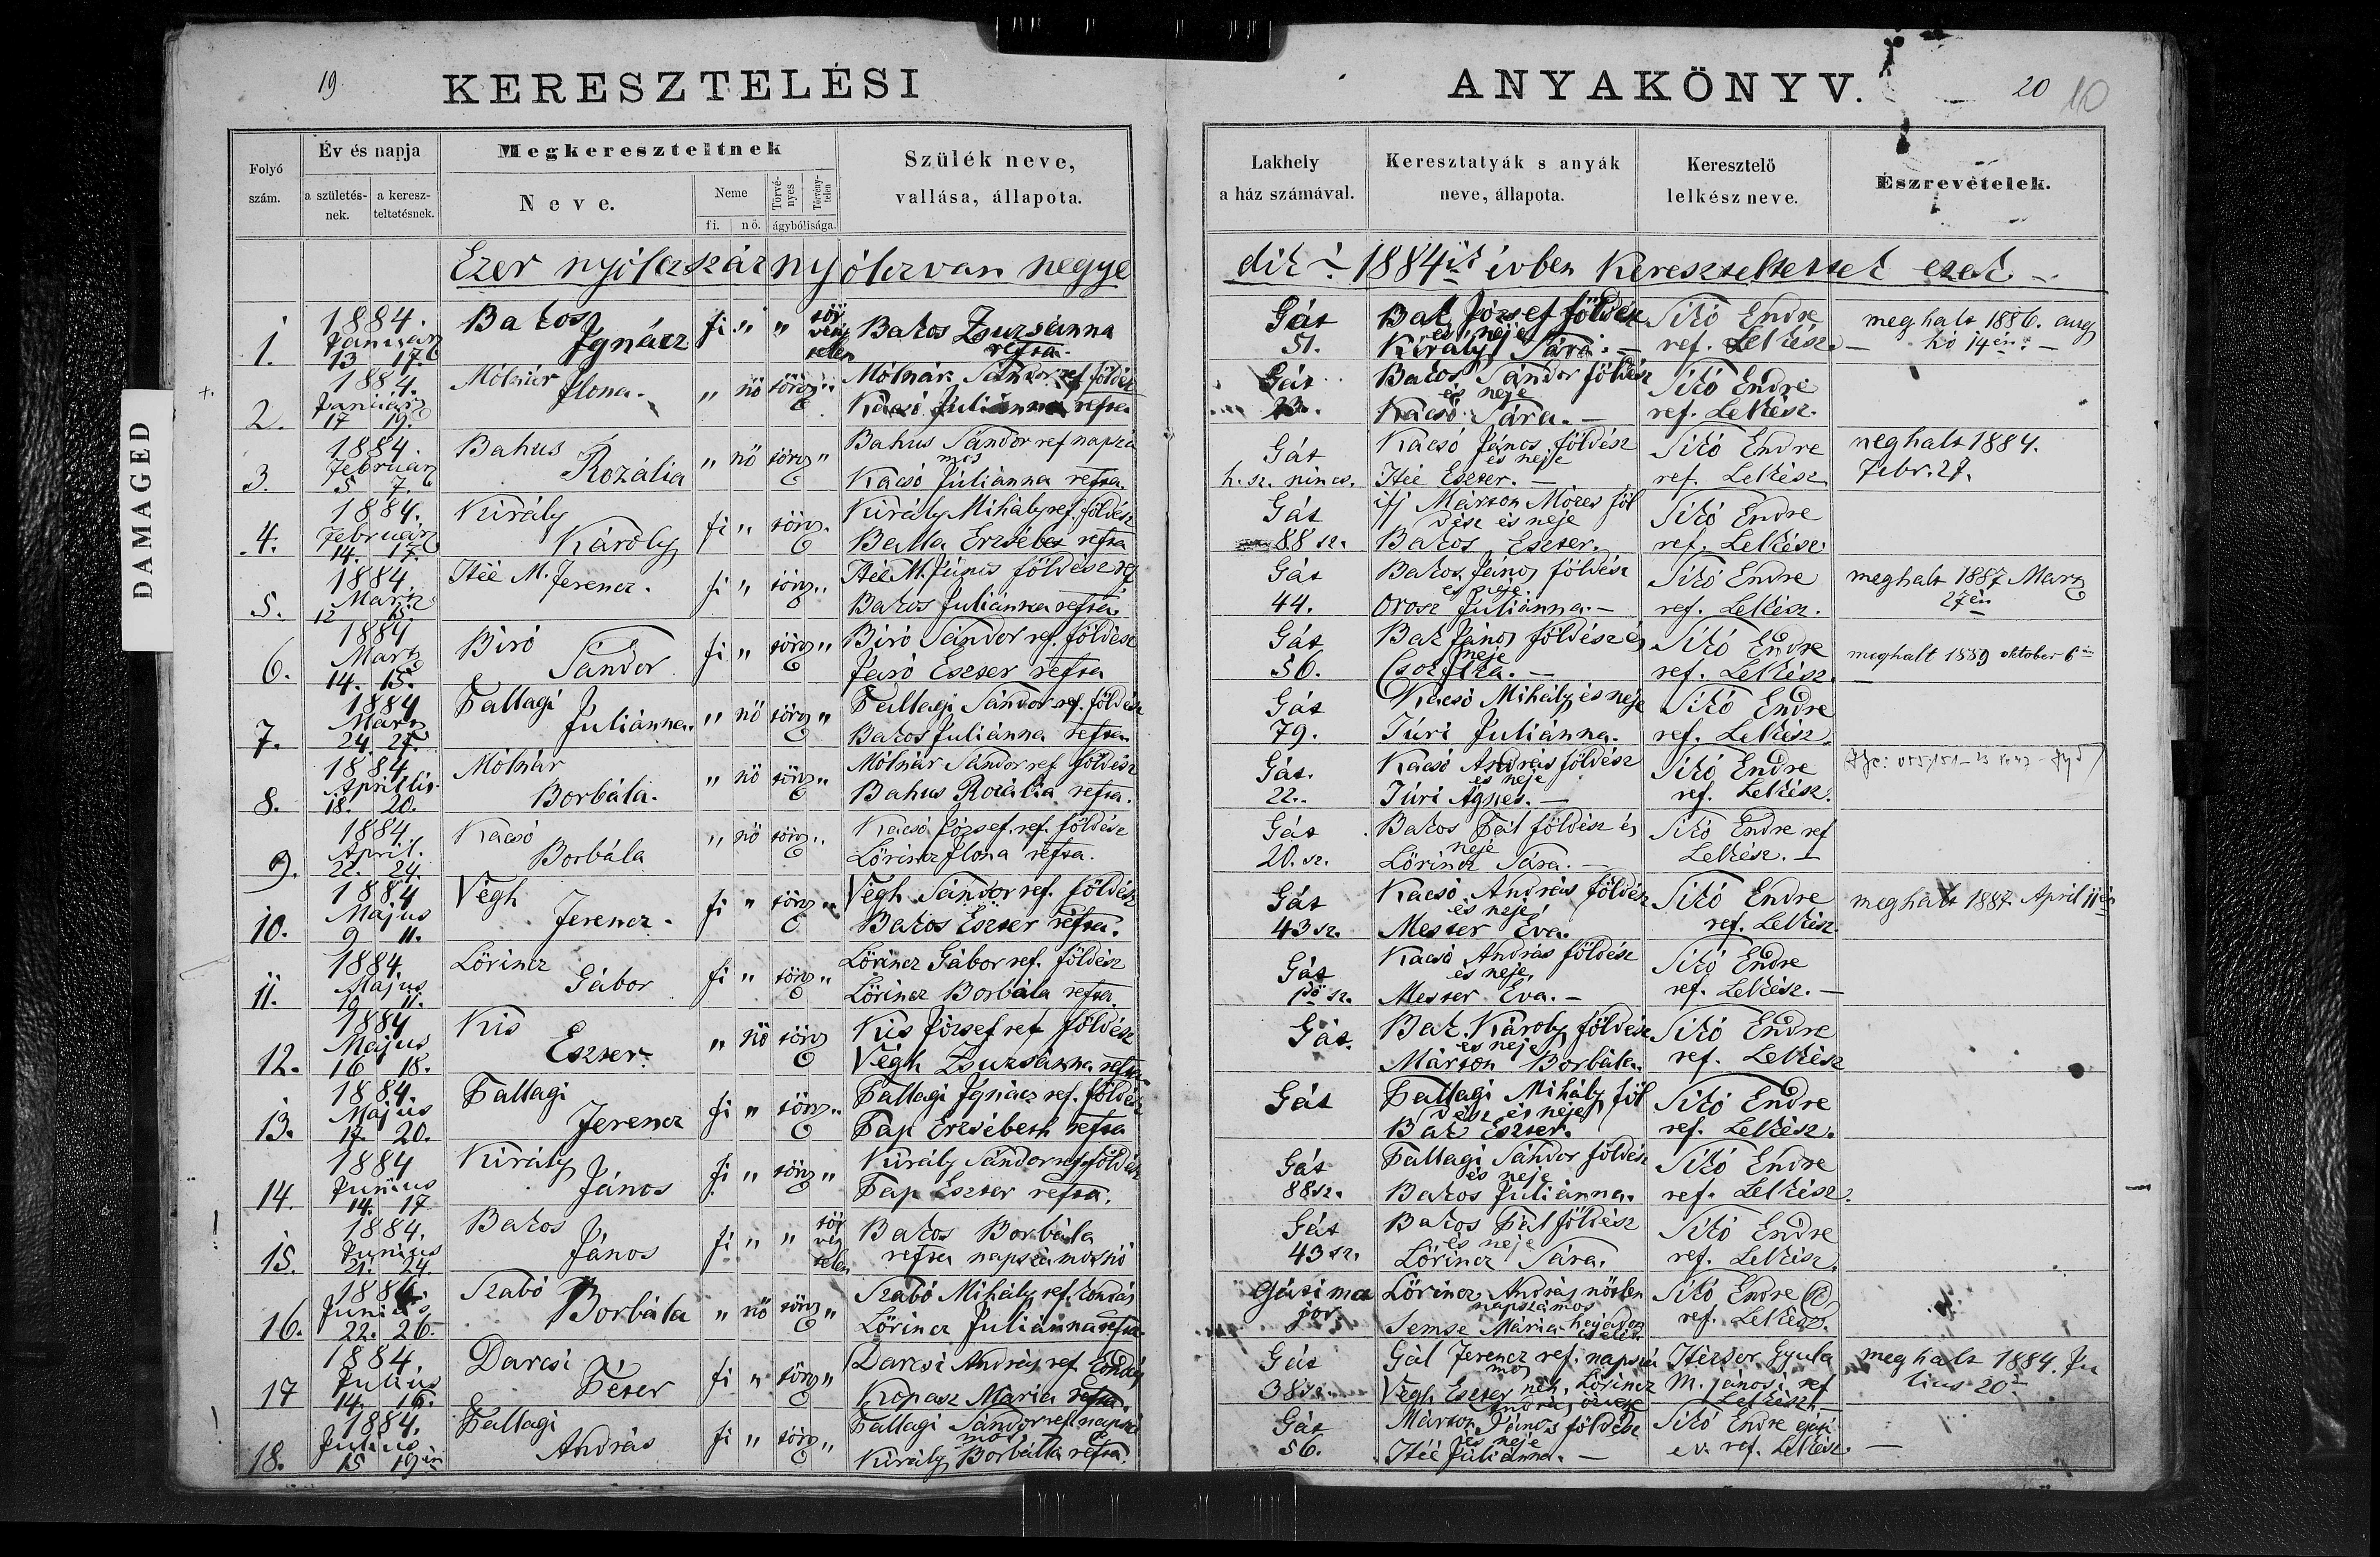 19
KERESZTELÉSI
ANYAKÖNYV.
20 10
DAMAGED
Folyó szám.
Év és napja
a születés-nek.
a keresz-teltetésnek.
Megkereszteltnek
Neve.
Neme
fi. nö.
Törvé-nyes
Törvény-telen
ágybólisága.
Szülék neve,
vallása, állapota.
Lakhely
a ház számával.
Keresztatyák s anyák
neve, állapota.
Keresztelö
lelkész neve.
Észrevételek.
Ezer nyolczszáz nyolczvan negye
dik 1884ik évben kereszteltettek ezek. –
1. 1884. Január 13 17. Bakos Ignácz fi " " törvény telen Bakos Zsuzsánna refta.
Gát 51. Bak József földész és neje Király Sára. – Sikó Endre ref. Lelkész. – meghalt 1886. aug hó 14én. –
2. 1884. Január 17 19. Mólnár Ilona. " nö törv " Mólnár Sándor ref. földész Kacsó Juliánna refta
Gát Bakos Sándor földész és neje Kacsó Sára. – Sikó Endre ref. Lelkész.
3. 1884. Február 5 7. Bahus Rozália " nö törv " Bahus Sándor ref napszá mos Kacsó Juliánna refta.
Gát h. sz. nincs. Kacsó János földész és neje Itée Eszter. – Sikó Endre ref. Lelkész meghalt 1884. Febr. 27.
4. 1884. Február 14. 17. Király Károly fi " törv. Király Mihály ref. földész Balla Erzsébet refta
Gát 88 sz. ifj Márton Mózes föl dész és neje Bakos Eszter. Sikó Endre ref. Lelkész
5. 1884. Martz 12 15. Itée M. Ferencz. fi " törv " Itée M. János földész ref Bakos Juliánna refta.
Gát 44. Bakos János földész és neje. Orosz Juliánna. – Sikó Endre ref. Lelkész. meghalt 1887 Martz 27én
6. 1884 Martz 14. 15. Biró Sándor fi " törv " Biró Sándor ref. földész Jaró Eszter refta
Gát 56. Bak János földész és neje Sikó Endre ref. Lelkész. meghalt 1889 oktober 6án
7. 1884 Martz 24. 27. Pallagi Juliánna. " nö törv " Pallagi Sándor ref. földész Bakos Juliánna refta.
Gát 79. Kacsó Mihály és neje Turi Juliánna. Sikó Endre ref. Lelkész
8. 1884 Aprillis. 18. 20. Mólnár Borbála. " nö törv " Mólnár Sándor ref földész Bahus Rozália refta.
Gát. 22. Kacsó András földész és neje Turi Ágnes. – Sikó Endre ref. Lelkész.
9. 1884. April. 22. 24. Kacsó Borbála " nö törv " Kacsó József. ref. földész Lörincz Ilona refta.
Gát 20. sz. Bakos Pál földész és neje Lörincz Sára. – Sikó Endre ref Lelkész. –
10. 1884 Május 9 11. Végh Ferencz. fi " törv " Végh Sándor ref. földész Bakos Eszter refta.
Gát 43 sz. Kacsó András földész és neje Mester Éva. Sikó Endre ref. Lelkész. meghalt 1887. April 11én
11. 1884. Május 10 11. Lörincz Gábor fi " törv " Lörincz Gábor ref. földész Lörincz Borbála refta
Gát sz. Kacsó András földész és neje Mester Éva. – Sikó Endre ref. Lelkész. –
12. 1884 Május 16 18. Kis Eszter " nö törv Kis József ref földész Végh Zsuzsánna refta
Gát. Bak Károly földész és neje Márton Borbála. Sikó Endre ref. Lelkész
13. 1884. Május 17. 20. Pallagi Ferencz fi " törv " Pallagi Ignácz ref. földész Pap Erzsébeth refta
Gát Pallagi Mihály föl dész és neje Bak Eszter. Sikó Endre ref. Lelkész.
14. 1884 Junius 14. 17 Király János fi " törv " Király Sándor ref földész Pap Eszter refta.
Gát 88 sz. Pallagi Sándor földész és neje Bakos Juliánna. Sikó Endre ref. Lelkész.
15. 1884. Junius 21. 24. Bakos János fi " " törvtelen Bakos Borbála refta napszámosnö
Gát 43 sz. Bakos Pál földész és neje Lörincz Sára. Sikó Endre ref. Lelkész.
16. 1884. Junius 22. 26. Szabó Borbála " nö törv " Szabó Mihály ref. kondás Lörincz Juliánna refta
Gátima jor. Lörincz András nötlen napszámos Semse Mária hajadon Sikó Endre ref. Lelkész.
17 1884. Julius 14. 16. Darcsi Péter fi " törv " Darcsi András ref. kondás Kopasz Mária refta.
Gát 38 sz. Gál Ferencz ref. napszá mos Végh Eszter néh. Lörincz András özvegye Gyula M. jánosi ref Lelkész. meghalt 1884. Ju lius 20án
18. 1884. Julius 15 19én Pallagi András fi " törv " Pallagi Sándor ref napszá mos Király Borbála refta.
Gát 56. Márton János földész és neje Itéé Juliánna. – Sikó Endre gáti ev. ref. Lelkész. –